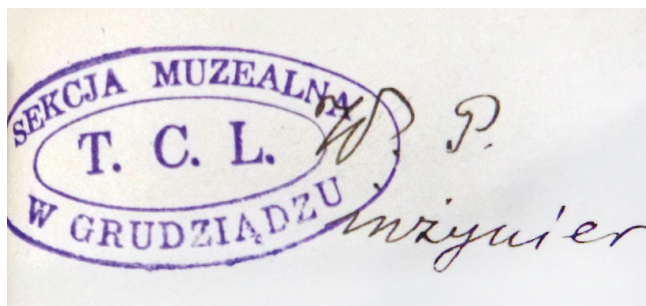 SEKCJA MUZEALNA
T. C. L.
W GRUDZIĄDZU
W. P.
inżynier